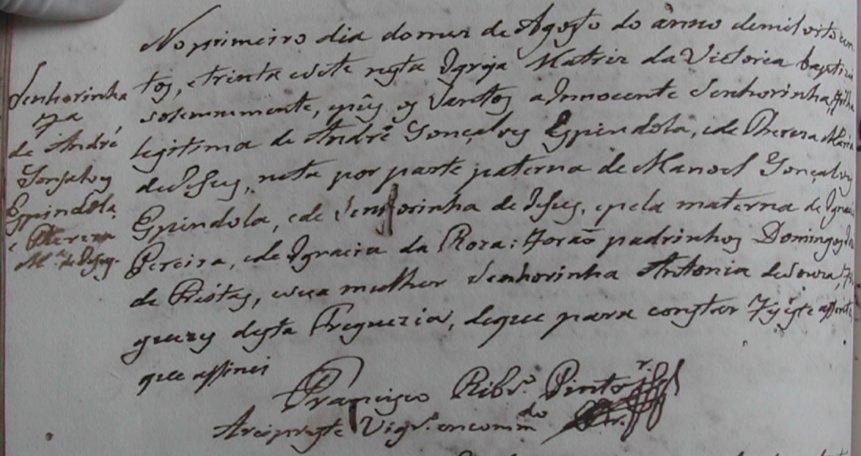 Senhorinha
de André
Gonsalvez
Espindola
e Thereza
M.ª de Jesus.
No primeiro dia do mez de Agosto do anno de mil oito cen
tos, e trinta e sete nesta Igreja Matriz da Victoria baptizei
solemnmente, e puz os Santos a Innocente Senhorinha, filha
legitima de André Gonçalvez Espindola, e de Thereza Maria
de Jesus, neta por parte paterna de Manoel Gonçalvez
Espindola, e de Senhorinha de Jesus, e pela materna de Ignacio
Pereira, e de Ignacia da Roza: Forão padrinhos Domingos
de Freitas, e sua mulher Senhorinha Antonia de Souza,
guezes desta Freguezia, de que para constar fiz este assento
que assinei
Francisco Ribr.º Pinto
Arcipreste Vigr.º encomm.do